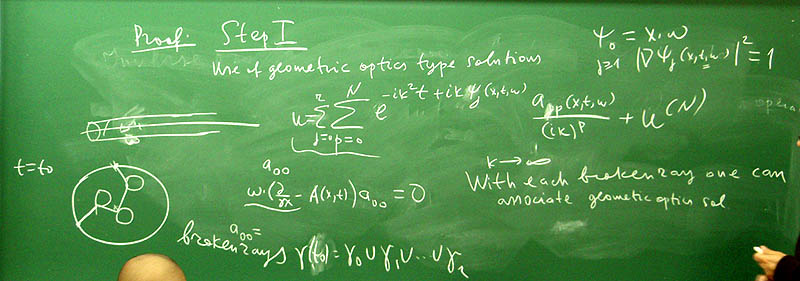 Proof. Step I
Use of geometric optics type solutions
ψ_0 = x·ω
j≥1 |∇ψ_j(x,t,ω)|^2 = 1
u = Σ_{j=0}^{r} Σ_{p=0}^{N} e^{-ik^2t + ikψ_j(x,t,ω)} a_{pp}(x,t,ω)/(ik)^p + u^{(N)}
k → ∞
t=t_0
a_{00}
ω·(∂/∂x - A(x,t)) a_{00} = 0
With each broken ray one can
associate geometric optics sol
a_{00} =
broken rays γ(t_0) = γ_0 ∪ γ_1 ∪ ... ∪ γ_r